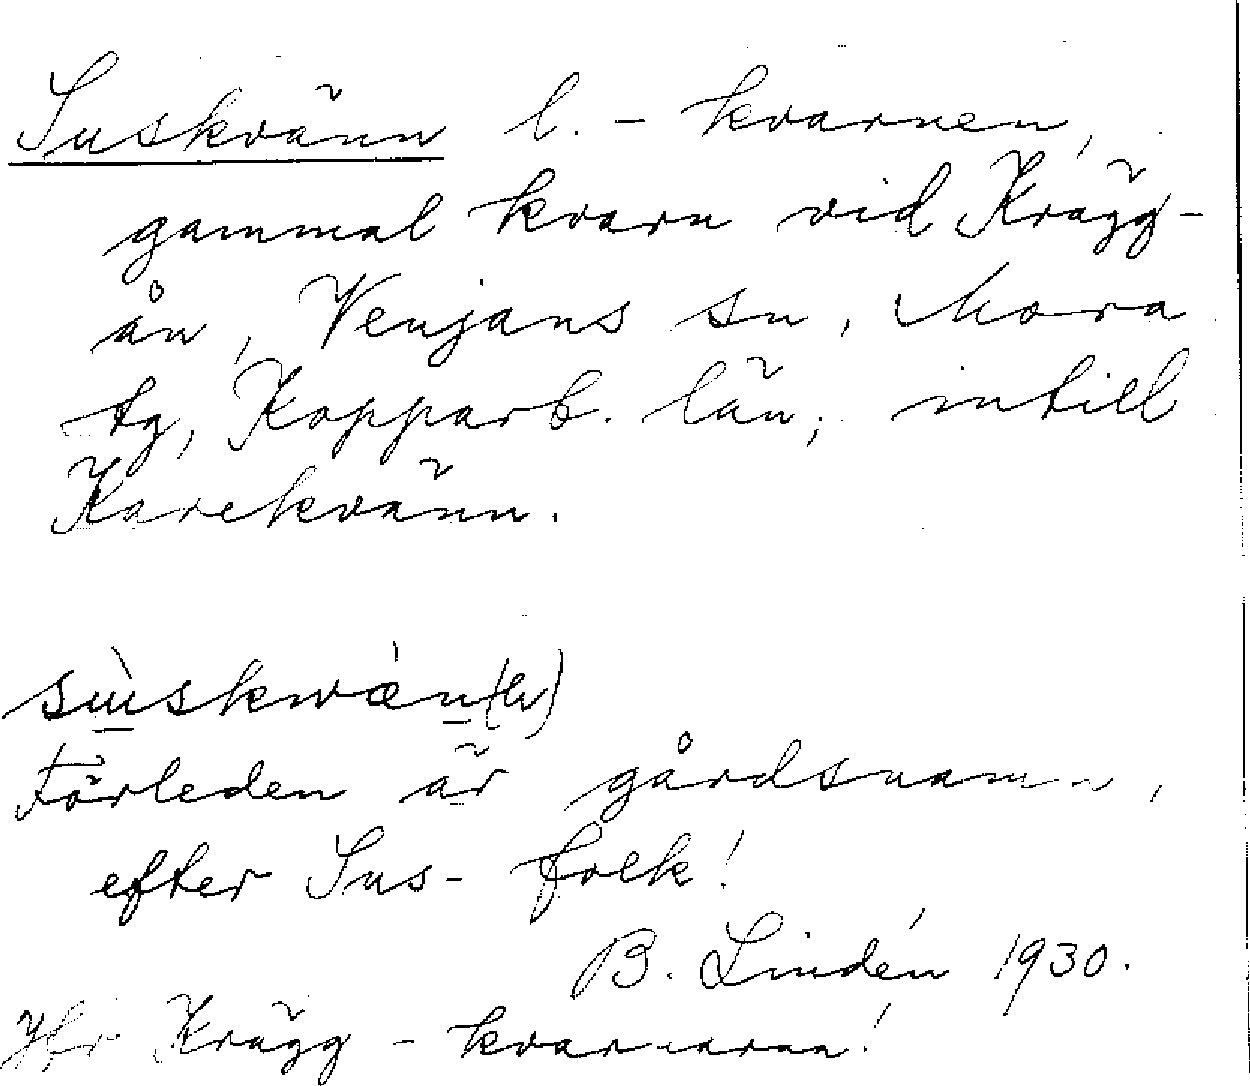 Suskvänn l. - kvarnen,
gammal kvarn vid Krägg-
ån, Venjans sn, Mora
tg, Kopparb. län; intill
Karekvänn.
sùskwæ̀n(n)
Förleden är gårdsnamn,
efter Sus- folk!
B. Lindén 1930.
Jfr Krägg - kvarnarna!